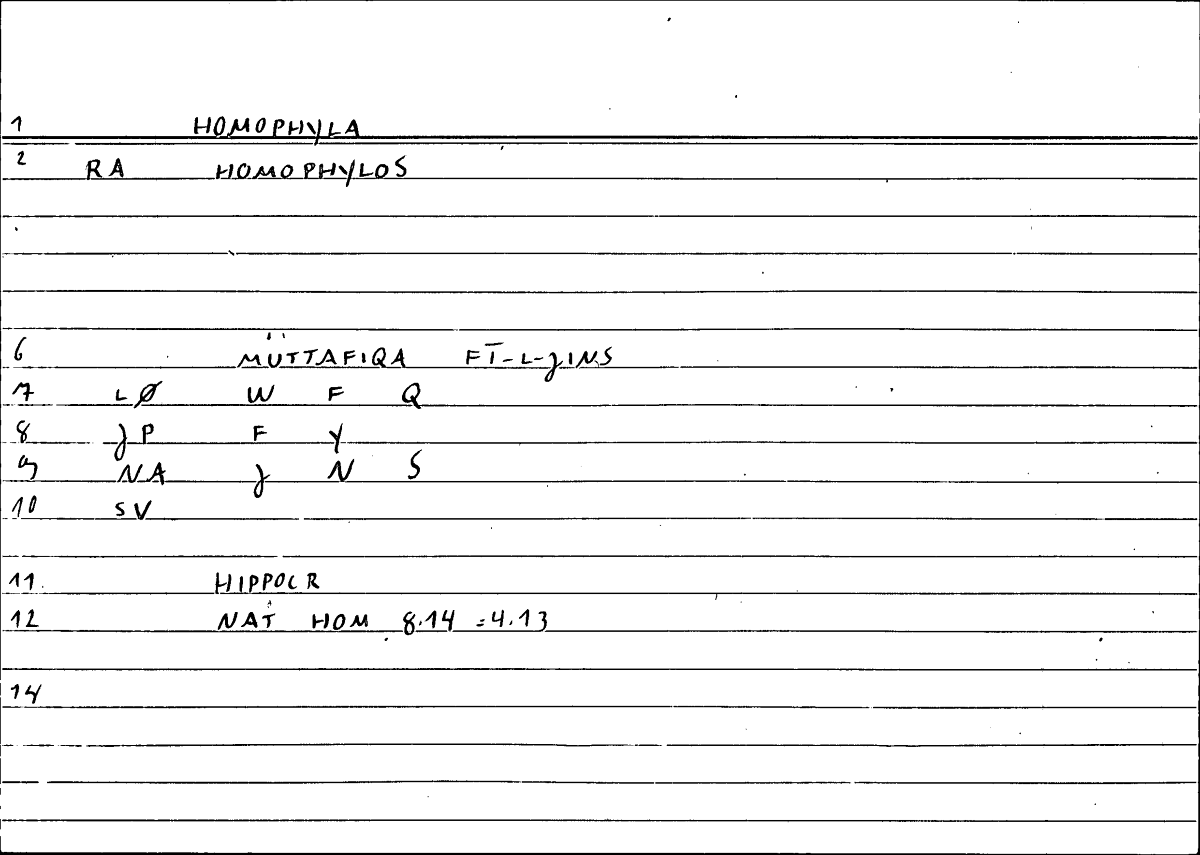 1 HOMOPHYLA
2 RA HOMOPHYLOS
6 MÜTTAFIQA FĪ-L-JINS
7 LØ W F Q
8 JP F Y
9 NA J N S
10 SV
11 HIPPOCR
12 NAT HOM 8.14 =4.13
14